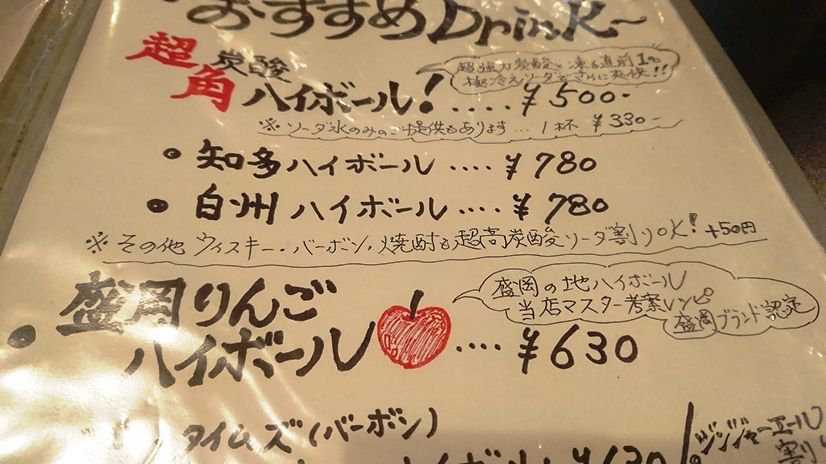 おすすめDrinK~
超角 炭酸
ハイボール!....¥500-
超強力炭酸と凍る直前1℃
極冷えソーダでさらに爽快!!
※ソーダ水のみのご提供もあります...1杯 ¥330-
• 知多ハイボール....¥780
• 白州ハイボール....¥780
※その他ウィスキー・バーボン・焼酎も超高炭酸ソーダ割りOK! +50円
• 盛岡りんご
ハイボール....¥630
盛岡の地ハイボール
当店マスター考案レシピ
盛岡ブランド認定
タイムズ(バーボン)
ジンジャーエール
割り